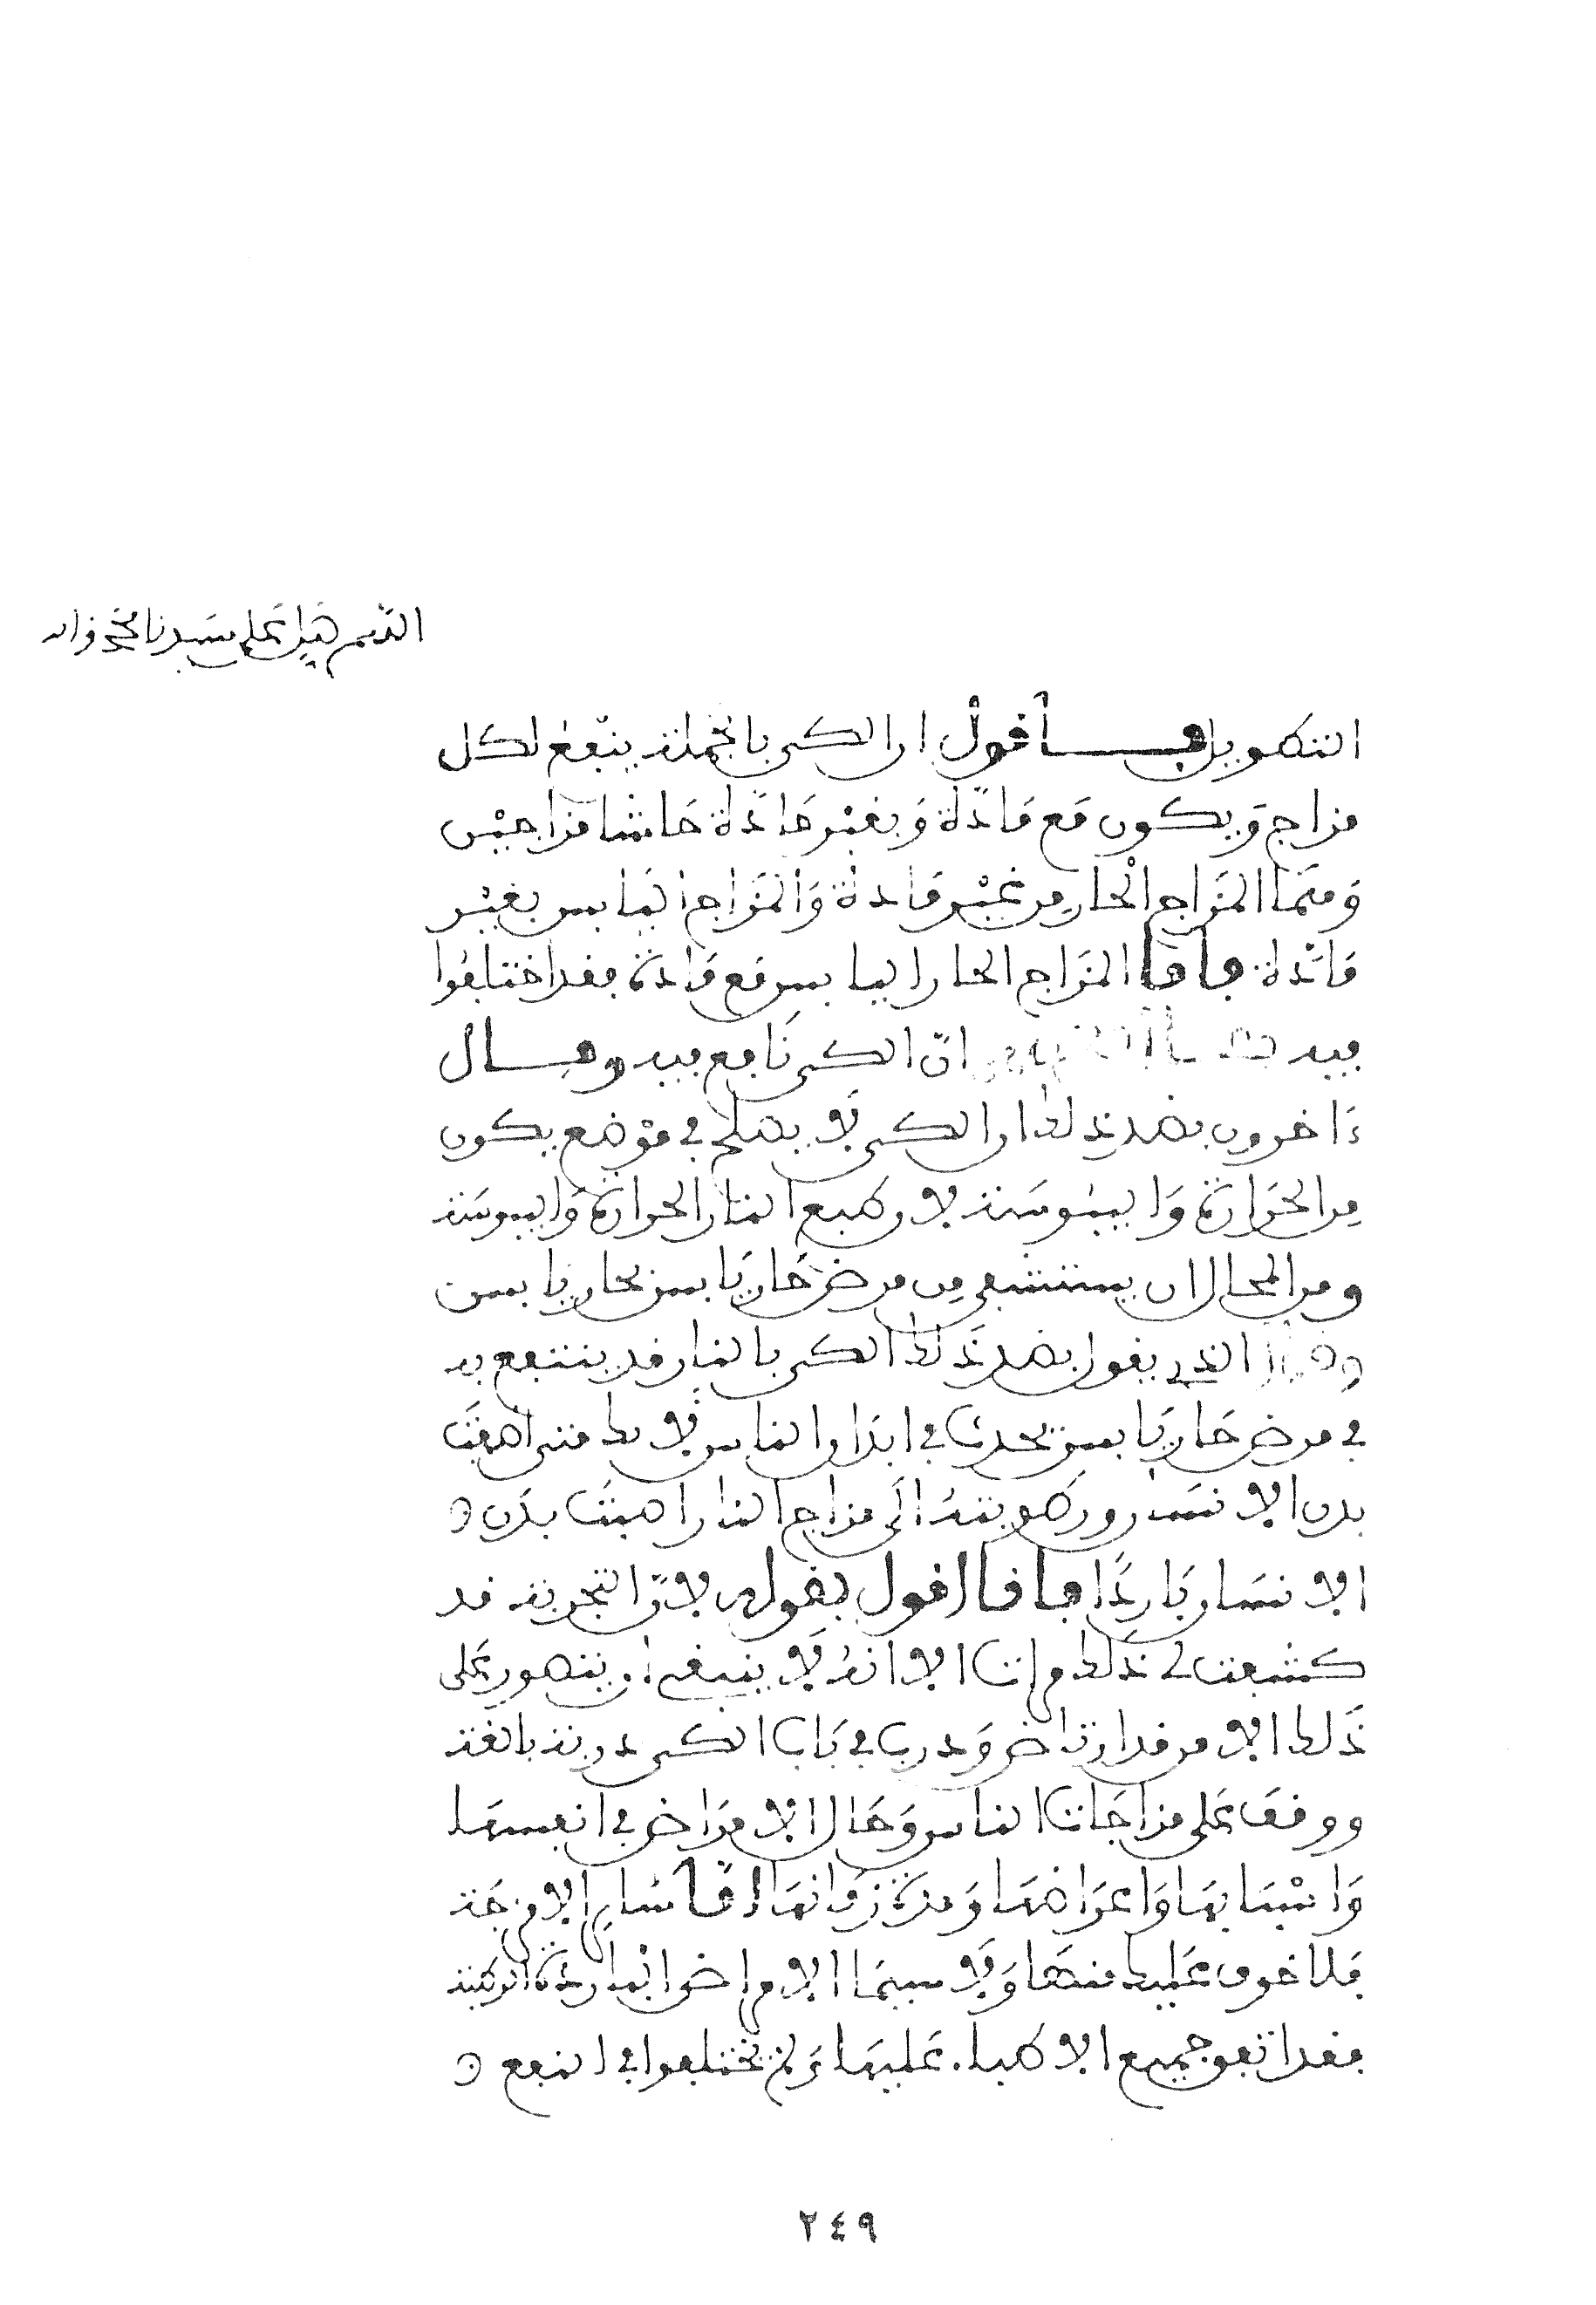 اللهم صل على سيدنا محمد واله
التطويل فأقول ان الكي بالجملة ينفع لكل
مزاج ويكون مع مادة وبغير مادة حاشا مزاجين
وهما المزاج الحار من غير مادة والمزاج اليابس بغير
مادة فأما المزاج الحار اليابس مع مادة فقد اختلفوا
فيه ان الكي نافع فيه وقال
ءاخرون بضد ذلك ان الكي لا يصلح في موضع يكون
من الحرارة واليبوسة لان طبع النار الحرارة واليبوسة
ومن المحال ان يستشفى من مرض حار يابس بحار يابس
وقال الذي يقول بضد ذلك الكي بالنار قد ينتفع به
في مرض حار يابس يحدث في ابدان الناس لانك متى اضفت
بدن الانسان ورطوبته الى مزاج النار اصبت بدن
الانسان باردا فانا اقول بقوله لان التجربة قد
كشفت لي ذلك مرات الا انه لا ينبغي ان يتصور على
ذلك الا من قد ارتاض ودرب في باب الكي دربة بالغة
ووقف على مزاجات الناس وحال الامراض في انفسها
واسبابها واعراضها ومدة زمانها اما سائر الامزجة
فلا خوف عليك منها ولا سيما الامراض الباردة الرطبة
فقد اتفق جميع الاطباء عليها ولم يختلفوا في النفع
٢٤٩